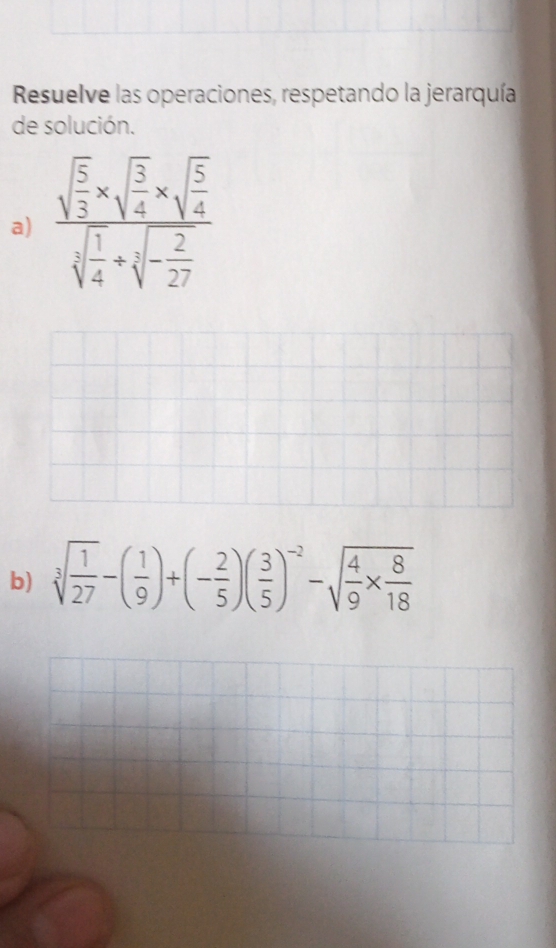 Resuelve las operaciones, respetando la jerarquía
de solución.
a) \frac{\sqrt{\frac{5}{3}} \times \sqrt{\frac{3}{4}} \times \sqrt{\frac{5}{4}}}{\sqrt[3]{\frac{1}{4}} \div \sqrt[3]{-\frac{2}{27}}}
b) \sqrt[3]{\frac{1}{27}} - \left(\frac{1}{9}\right) + \left(-\frac{2}{5}\right)\left(\frac{3}{5}\right)^{-2} - \sqrt{\frac{4}{9} \times \frac{8}{18}}